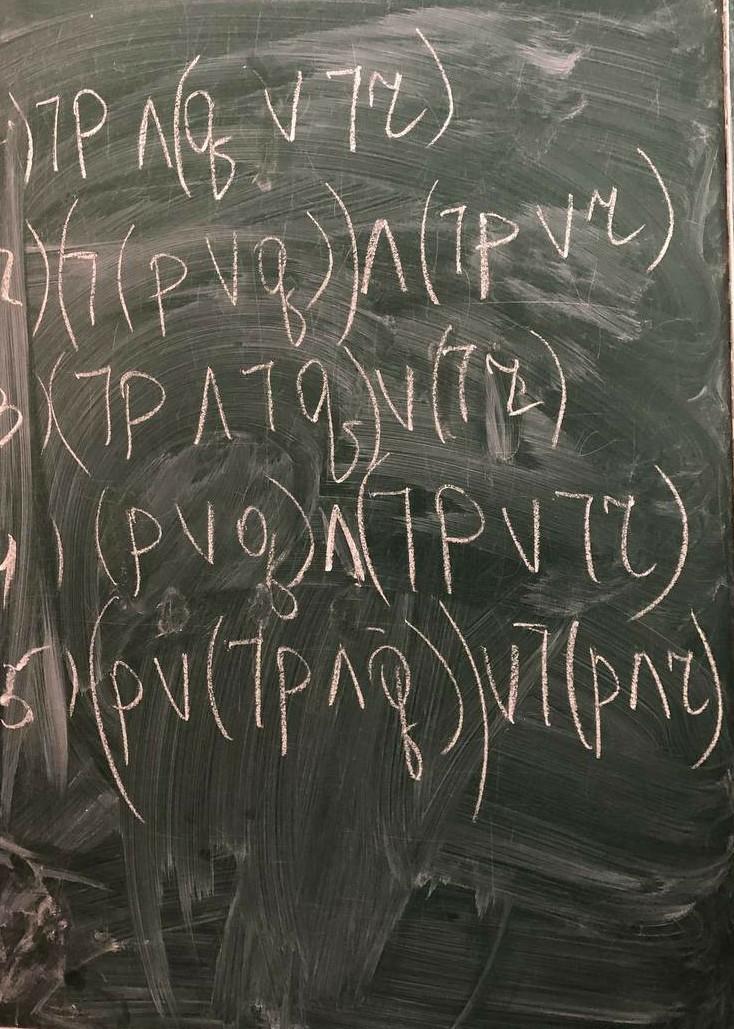 1) ¬p ∧ (q ∨ ¬r)
2) (¬(p ∨ q)) ∧ (¬p ∨ r)
3) (¬p ∧ ¬q) ∨ (¬r)
4) (p ∨ q) ∧ (¬p ∨ ¬r)
5) (p ∨ (¬p ∧ q)) ∨ ¬(p ∧ r)